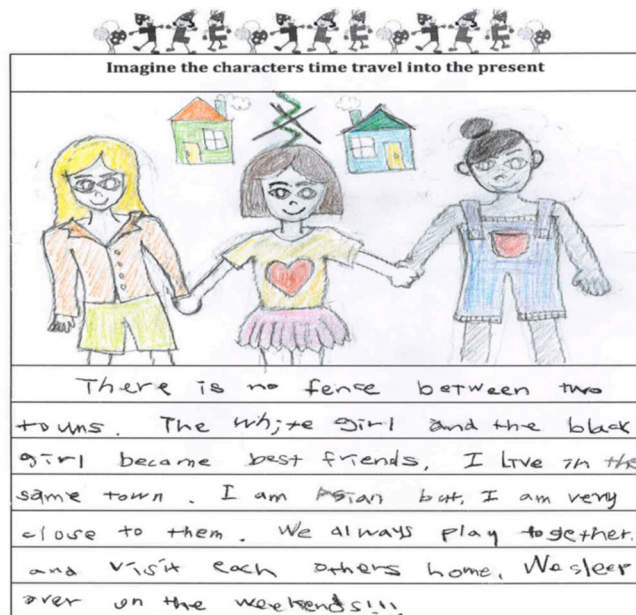 Imagine the characters time travel into the present
There is no fence between two
towns. The white girl and the black
girl became best friends, I Live in the
same town. I am Asian but, I am very
close to them. We always play together.
and visit each others home. We sleep
over on the weekends!!!!